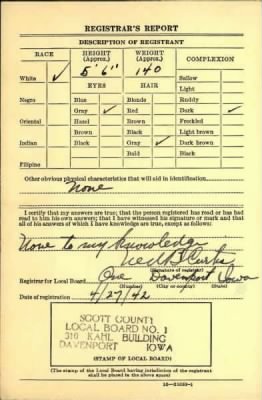 REGISTRAR'S REPORT
DESCRIPTION OF REGISTRANT
RACE HEIGHT (Approx.) WEIGHT (Approx.) COMPLEXION
White ✓ 5' 6" 140 Sallow
Light
EYES HAIR
Negro Blue Blonde Ruddy
Gray ✓ Red Dark ✓
Oriental Hazel Brown Freckled
Brown Black Light brown
Indian Black Gray ✓ Dark brown
Bald Black
Filipino
Other obvious physical characteristics that will aid in identification
None
I certify that my answers are true; that the person registered has read or has had
read to him his own answers; that I have witnessed his signature or mark and that
all of his answers of which I have knowledge are true, except as follows:
None to my knowledge
Curtis
(Signature of registrar)
Registrar for Local Board One Davenport Iowa
(Number) (City or county) (State)
Date of registration 4/27/42
SCOTT COUNTY
LOCAL BOARD NO. 1
310 KAHL BUILDING
DAVENPORT IOWA
(STAMP OF LOCAL BOARD)
(The stamp of the Local Board having jurisdiction of the registrant
shall be placed in the above space)